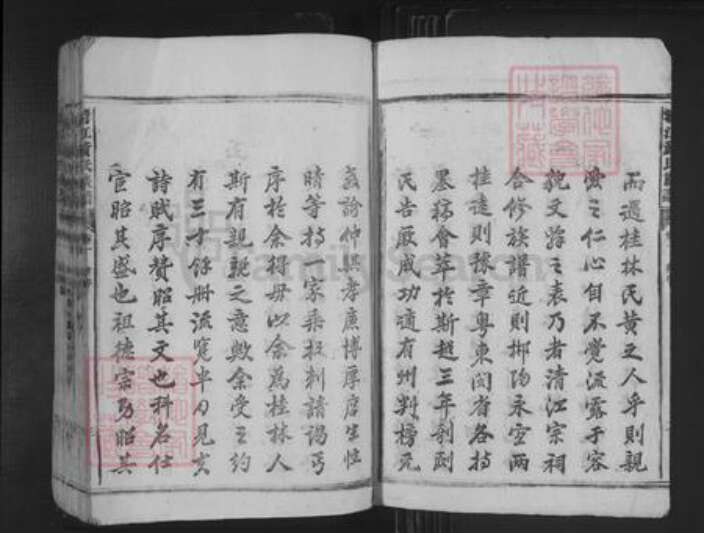 而遇桂林民黃之人乎則親
之仁心自不覺流露于容
貌文辭之表乃者清江宗祠
合修族譜近則鄉陽永寧兩
桂遠則豫章粵東閩省各持
墨稿會萃於斯越三年剞劂
氏告厥成功適有州判榜
仲興孝廉博厚庠生性
晴等持一家乘投刺請謁丐
序於余得毋以余為桂林人
斯有親親之意歟余受之約
有三十餘冊流覽半月見
詩賦序贊昭其文也科名仕
宦昭其盛也祖德宗功昭其
FamilySearch